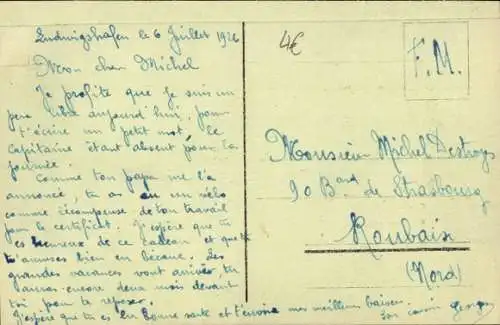 Ludwigshafen le 6 Juillet 1926
Mon cher Michel
Je profite que je suis un
peu libre aujourd'hui pour
t'écrire un petit mot, le
capitaine étant absent pour la
journée.
Comme ton papa me l'a
annoncé, tu as eu un vélo
comme récompense de ton travail
pour le certificat. J'espère que tu
es heureux de ce cadeau et que tu
t'amuses bien en bécane. Les
grandes vacances vont arriver, tu
auras encore deux mois devant
toi pour te reposer.
J'espère que tu es en bonne santé et t'envoie mes meilleurs baisers.
Ton cousin Georges
4€
F.M.
Monsieur Michel Destroys
90 Bard de Strasbourg
Roubaix
(Nord)